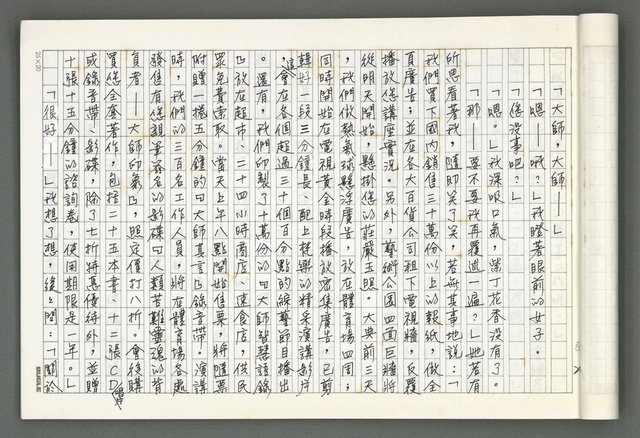 「大師,大師——」
「嗯——哦?」我瞪著眼前的女子。
「您沒事吧?」
「嗯。」我深吸口氣,紫丁花香沒有了。
「那——要不要我再覆述一遍?」她若有
所思看著我,隨即笑了笑,若無其事地說:「
我們買下國內銷售三十萬份以上的報紙,做全
頁廣告;並在各大百貨公司租下電視牆,反覆
播放您講座實況。另外,藝術公園四面巨牆將
從明天開始,懸掛您的莊嚴玉照。大典前三天
,我們做熱氣球懸浮廣告,放在體育場四周;
同時開始在電視黃金時段播放密集廣告,已剪
輯好一段三分鐘長、配上梵樂的精采演講影片
,這會在各個超過三十個百分點的綜藝節目播出
。還有,我們印製了十萬份的《大師智慧語錄
》放在超市、二十四小時商店、速食店,供民
眾免費索取。當天上午八點開始售票,將隨票
附贈一捲五分鐘的《大師真言》錄音帶。演講
時,我們的三百名工作人員,將在體育場各處
發售有您親筆簽名的影碟《人類苦難靈魂的背
負者——大師印氣》,照定價打八折。會後購
買您全套著作,包括二十五本書、十二張CD
或錄音帶、影碟,除了七折特惠優待外,並贈
十張十五分鐘的諮詢卷,使用期限是一年。」
「很好——」我想了想,緩上問:「關於
25×20